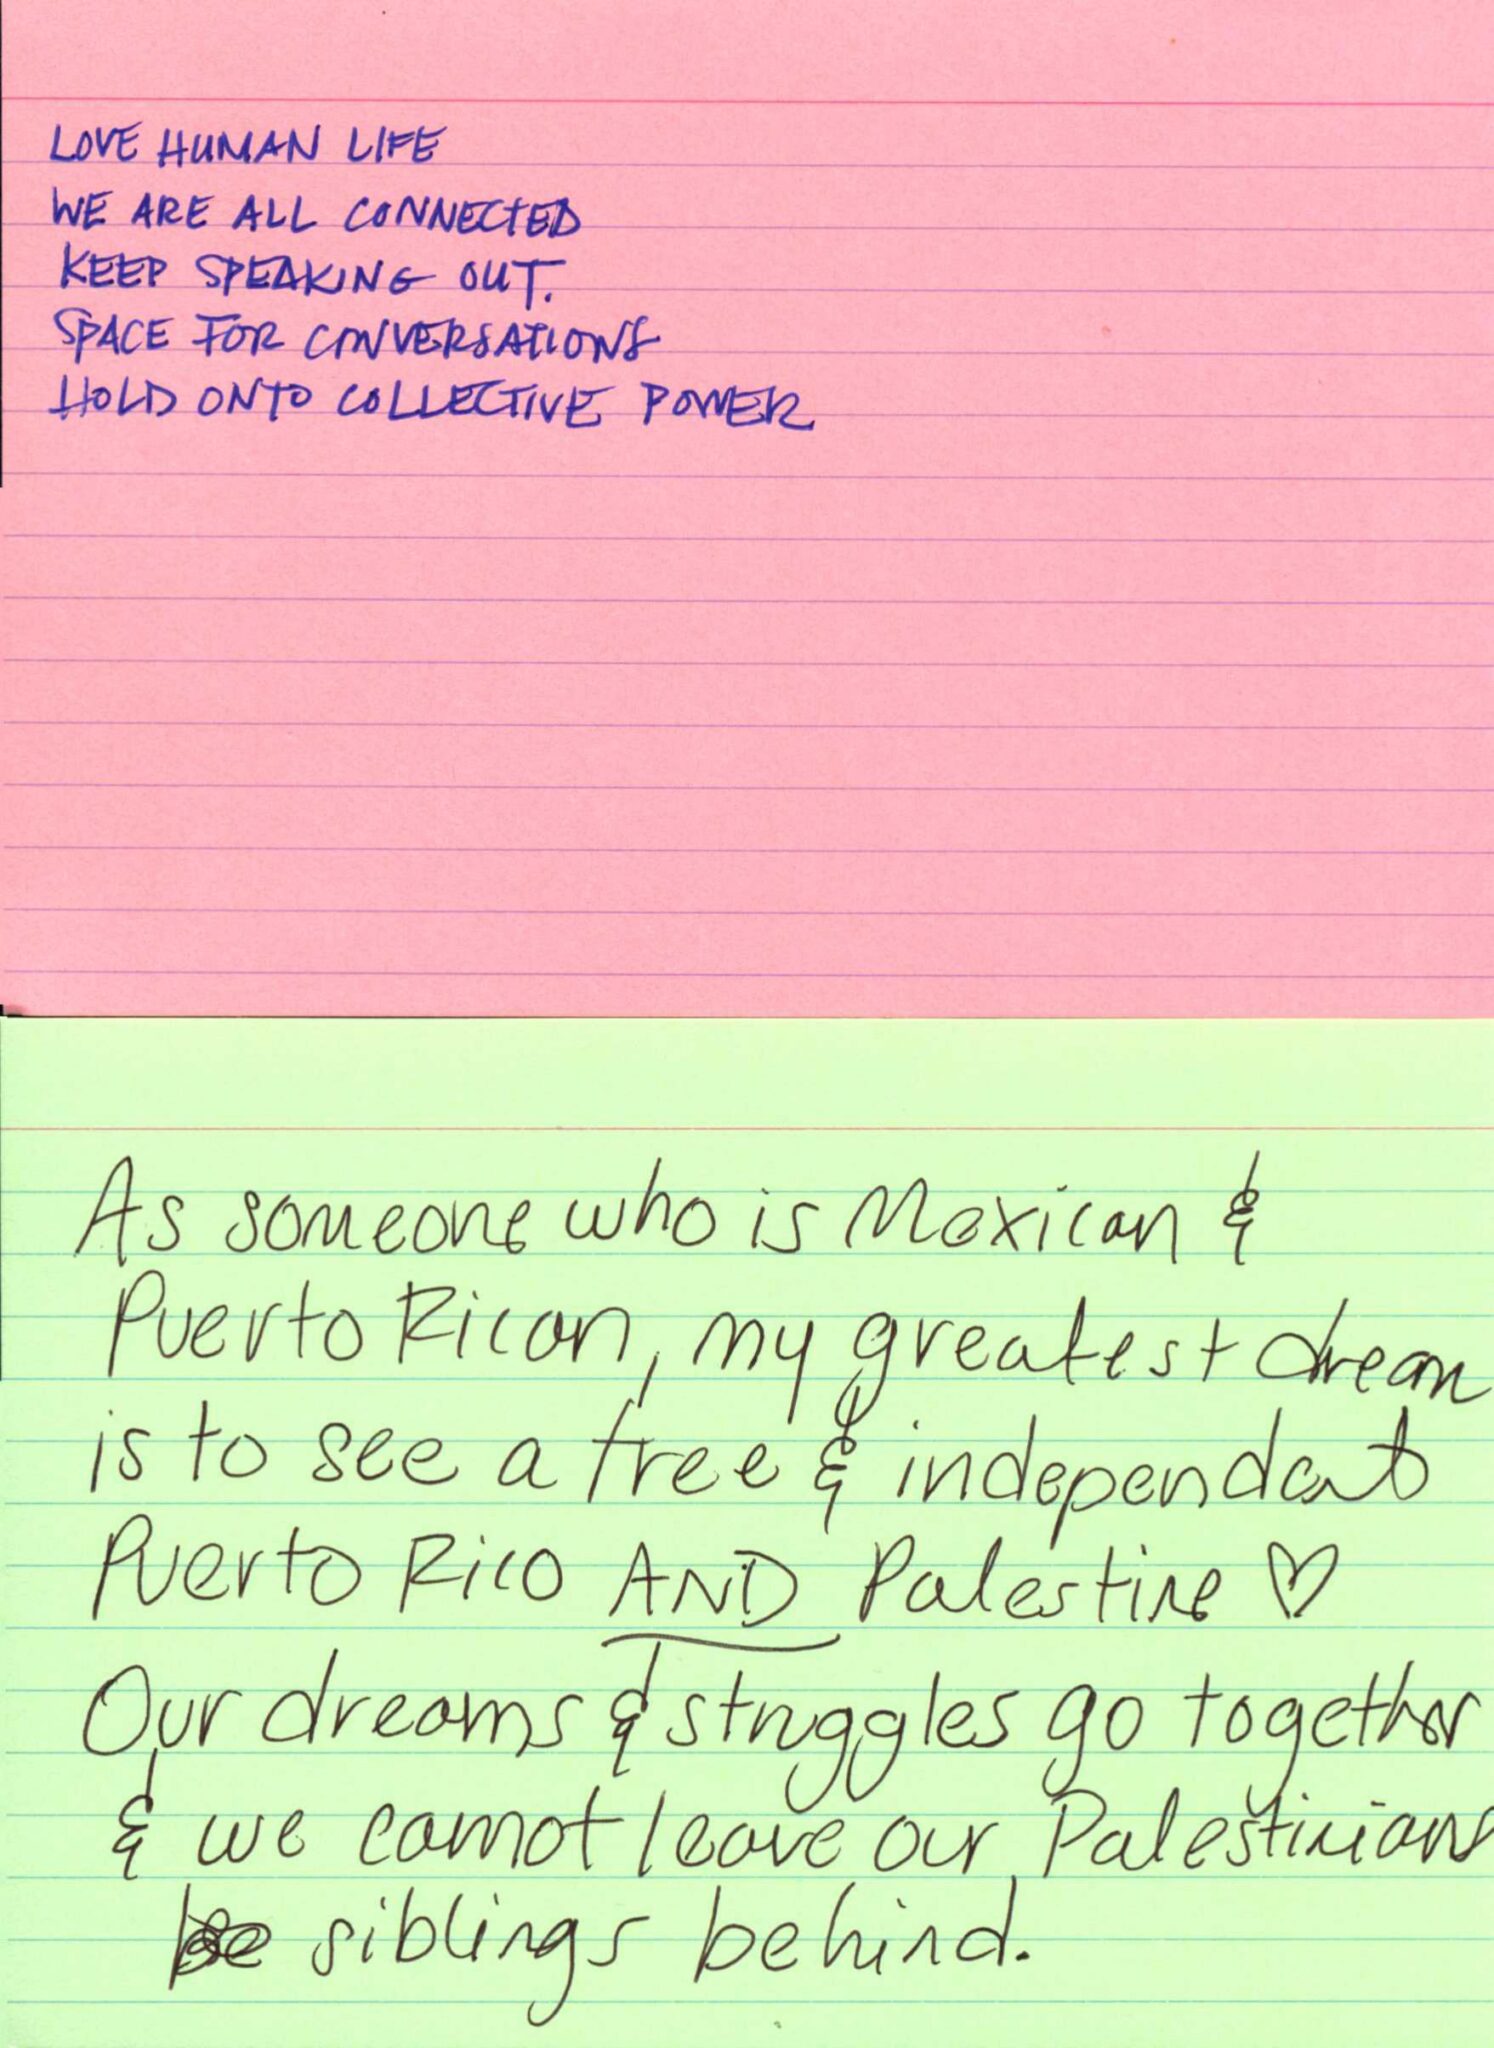 LOVE HUMAN LIFE
WE ARE ALL CONNECTED
KEEP SPEAKING OUT.
SPACE FOR CONVERSATIONS
HOLD ONTO COLLECTIVE POWER
As someone who is Mexican &
Puerto Rican, my greatest dream
is to see a free & independent
Puerto Rico AND Palestine ♡
Our dreams & struggles go together
& we cannot leave our Palestinian
siblings behind.